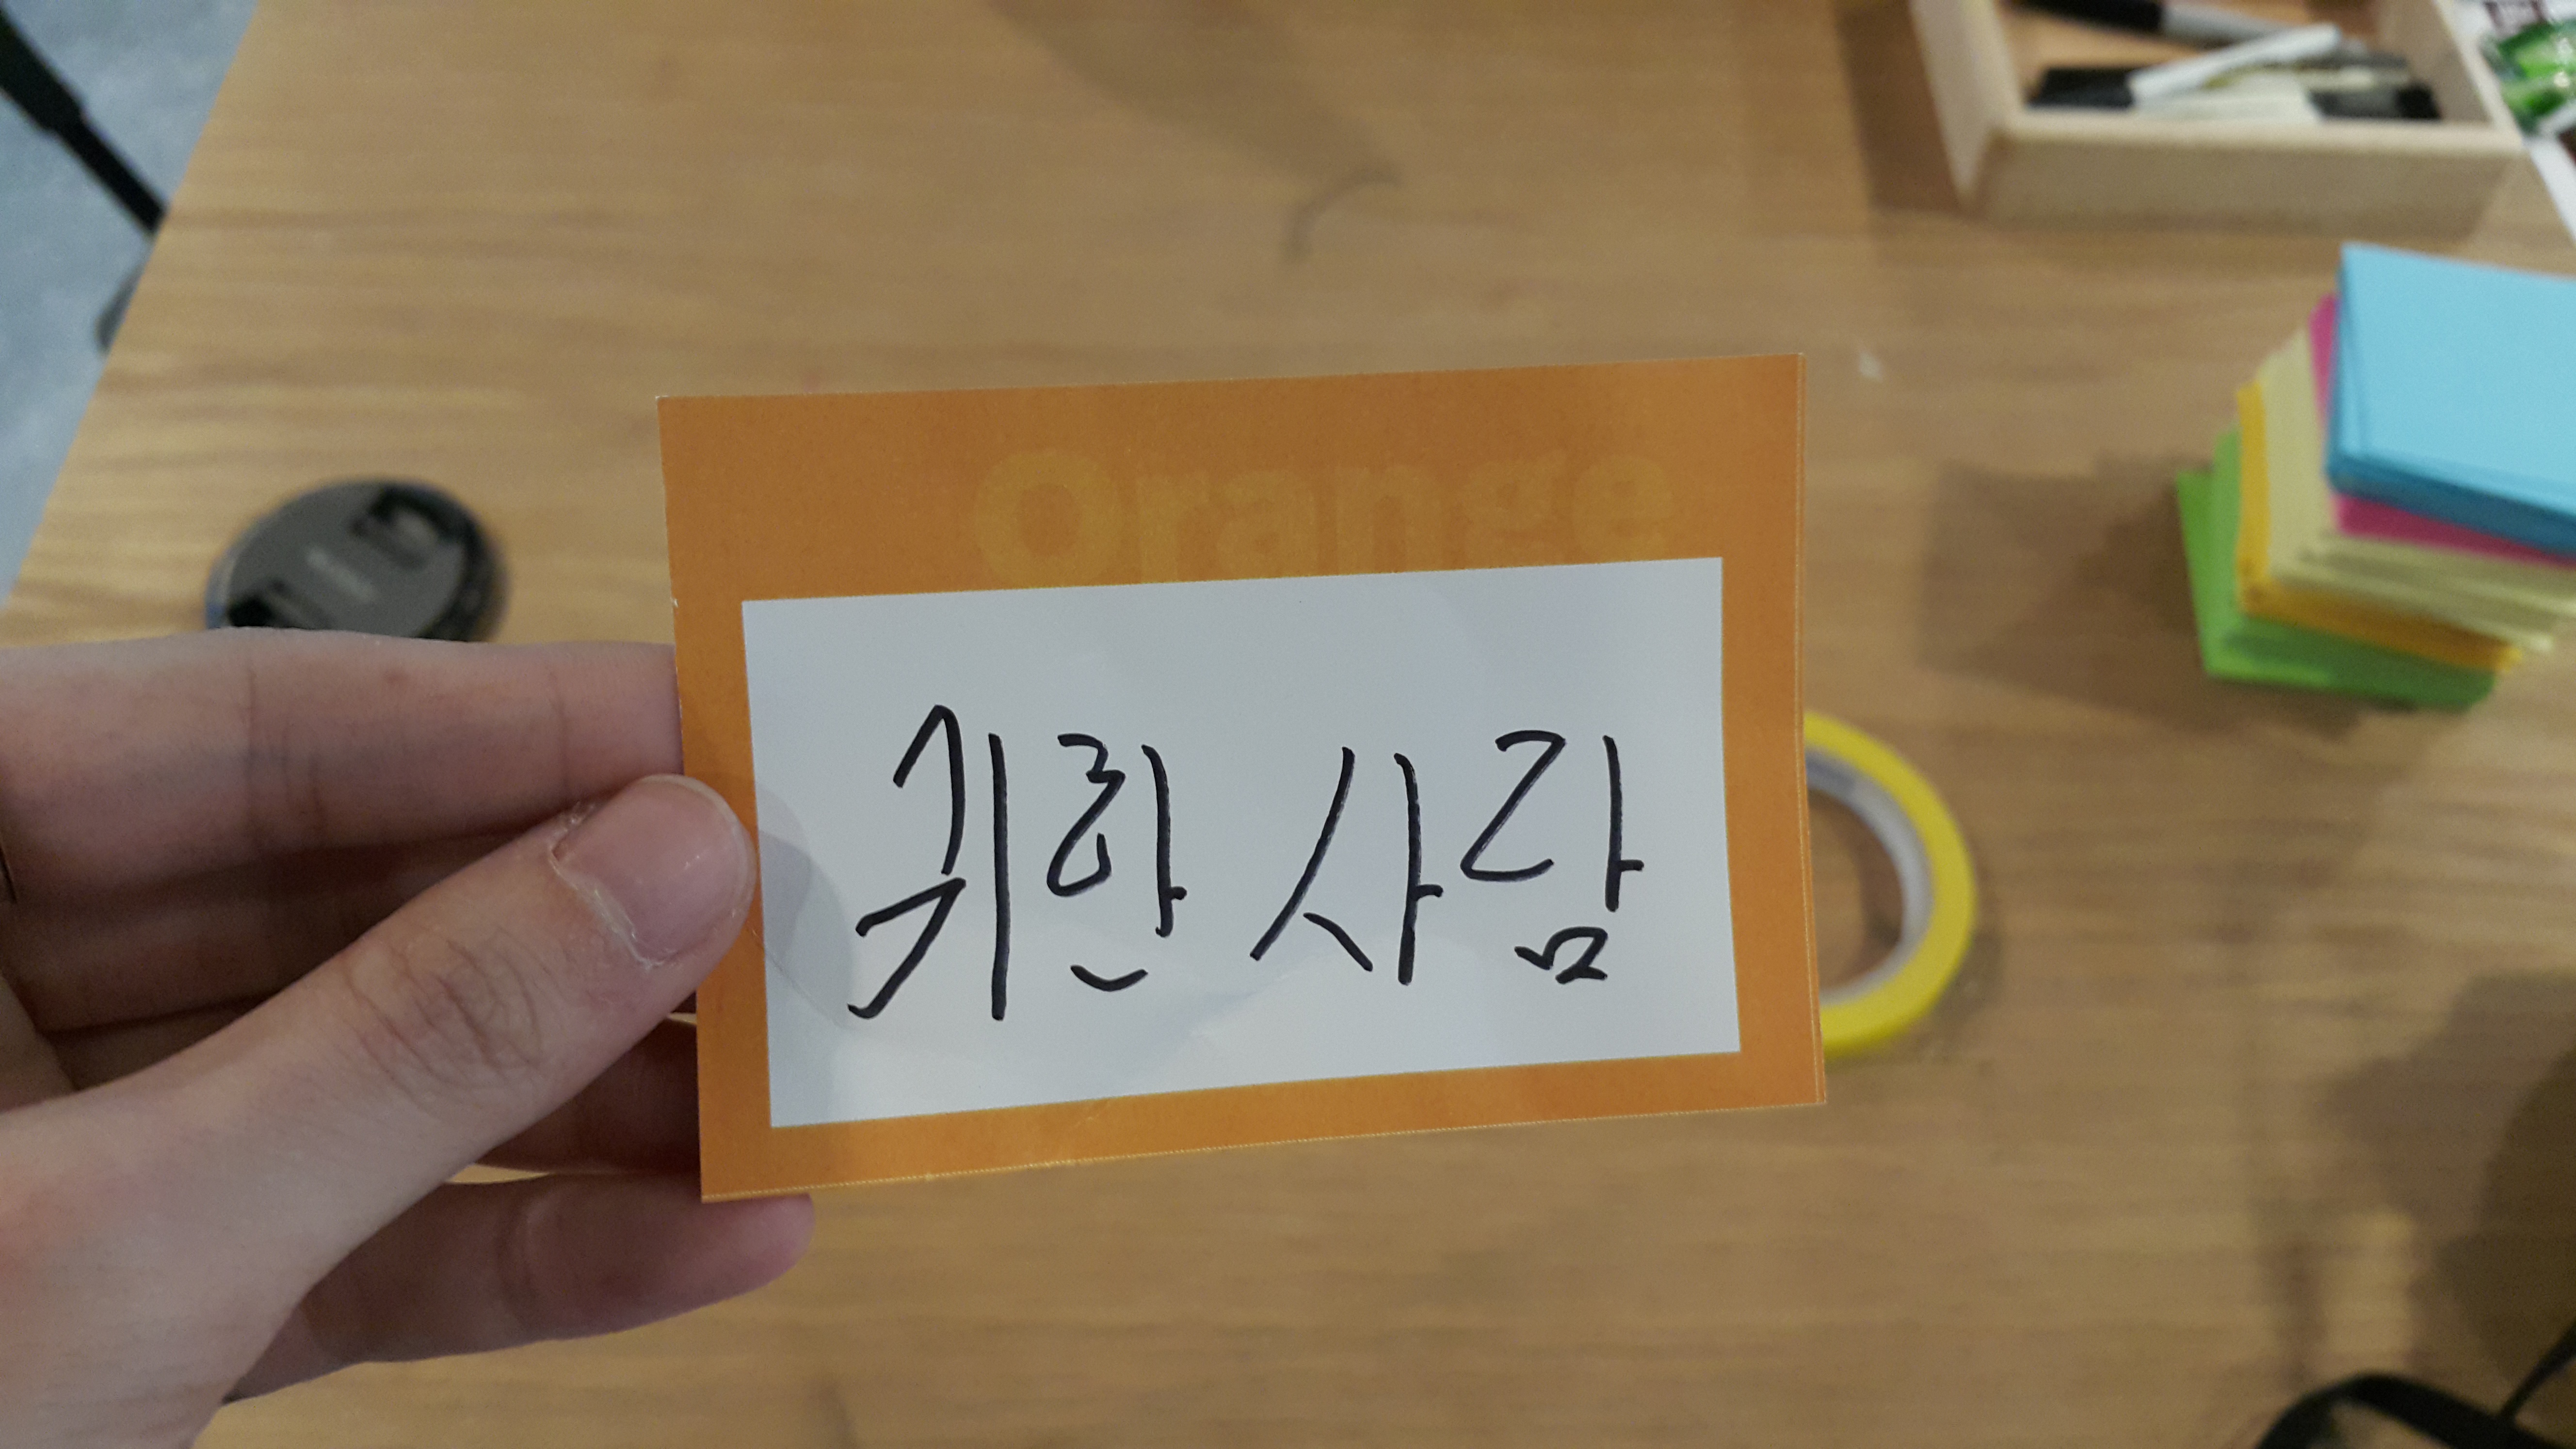 Orange
귀한 사람